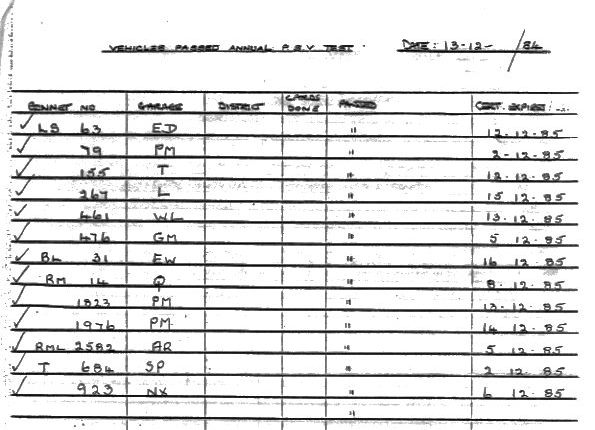 VEHICLES PASSED ANNUAL P.S.V TEST. DATE: 13-12- / 84
BONNET NO GARAGE DISTRICT CARDS DONE PASSED CERT. EXPIRES
✓ LS 63 ED " 12-12-85
✓ 79 PM " 2-12-85
✓ 155 T " 12-12-85
✓ 267 L " 15 12-85
✓ 461 WL " 13-12-85
✓ 476 GM " 5 12-85
✓ BL 31 EW " 16 12-85
✓ RM 14 Q " 8-12-85
✓ 1823 PM " 13-12-85
✓ 1976 PM " 14 12-85
✓ RML 2582 AR " 5 12-85
✓ T 684 SP " 2 12-85
✓ 923 NX " 6 12-85
"